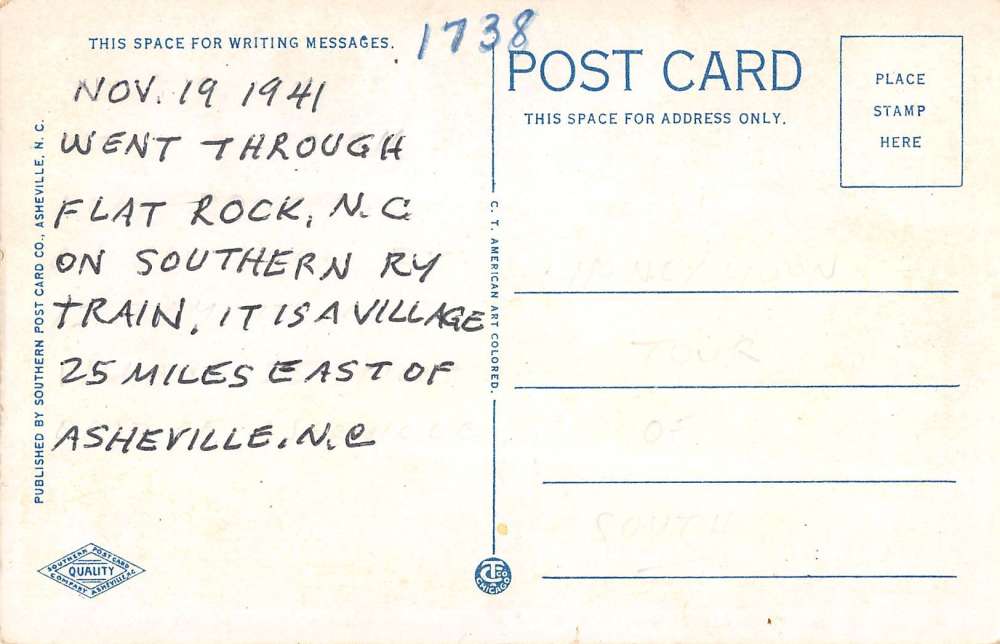 THIS SPACE FOR WRITING MESSAGES.
1738
POST CARD
THIS SPACE FOR ADDRESS ONLY.
PLACE
STAMP
HERE
NOV. 19 1941
WENT THROUGH
FLAT ROCK, N.C
ON SOUTHERN RY
TRAIN, IT IS A VILLAGE
25 MILES EAST OF
ASHEVILLE, N.C
PUBLISHED BY SOUTHERN POST CARD CO., ASHEVILLE, N. C.
C. T. AMERICAN ART COLORED.
TOUR
OF
SOUTH
SOUTHERN POST CARD
QUALITY
COMPANY ASHEVILLE, N.C.
CT CO
CHICAGO